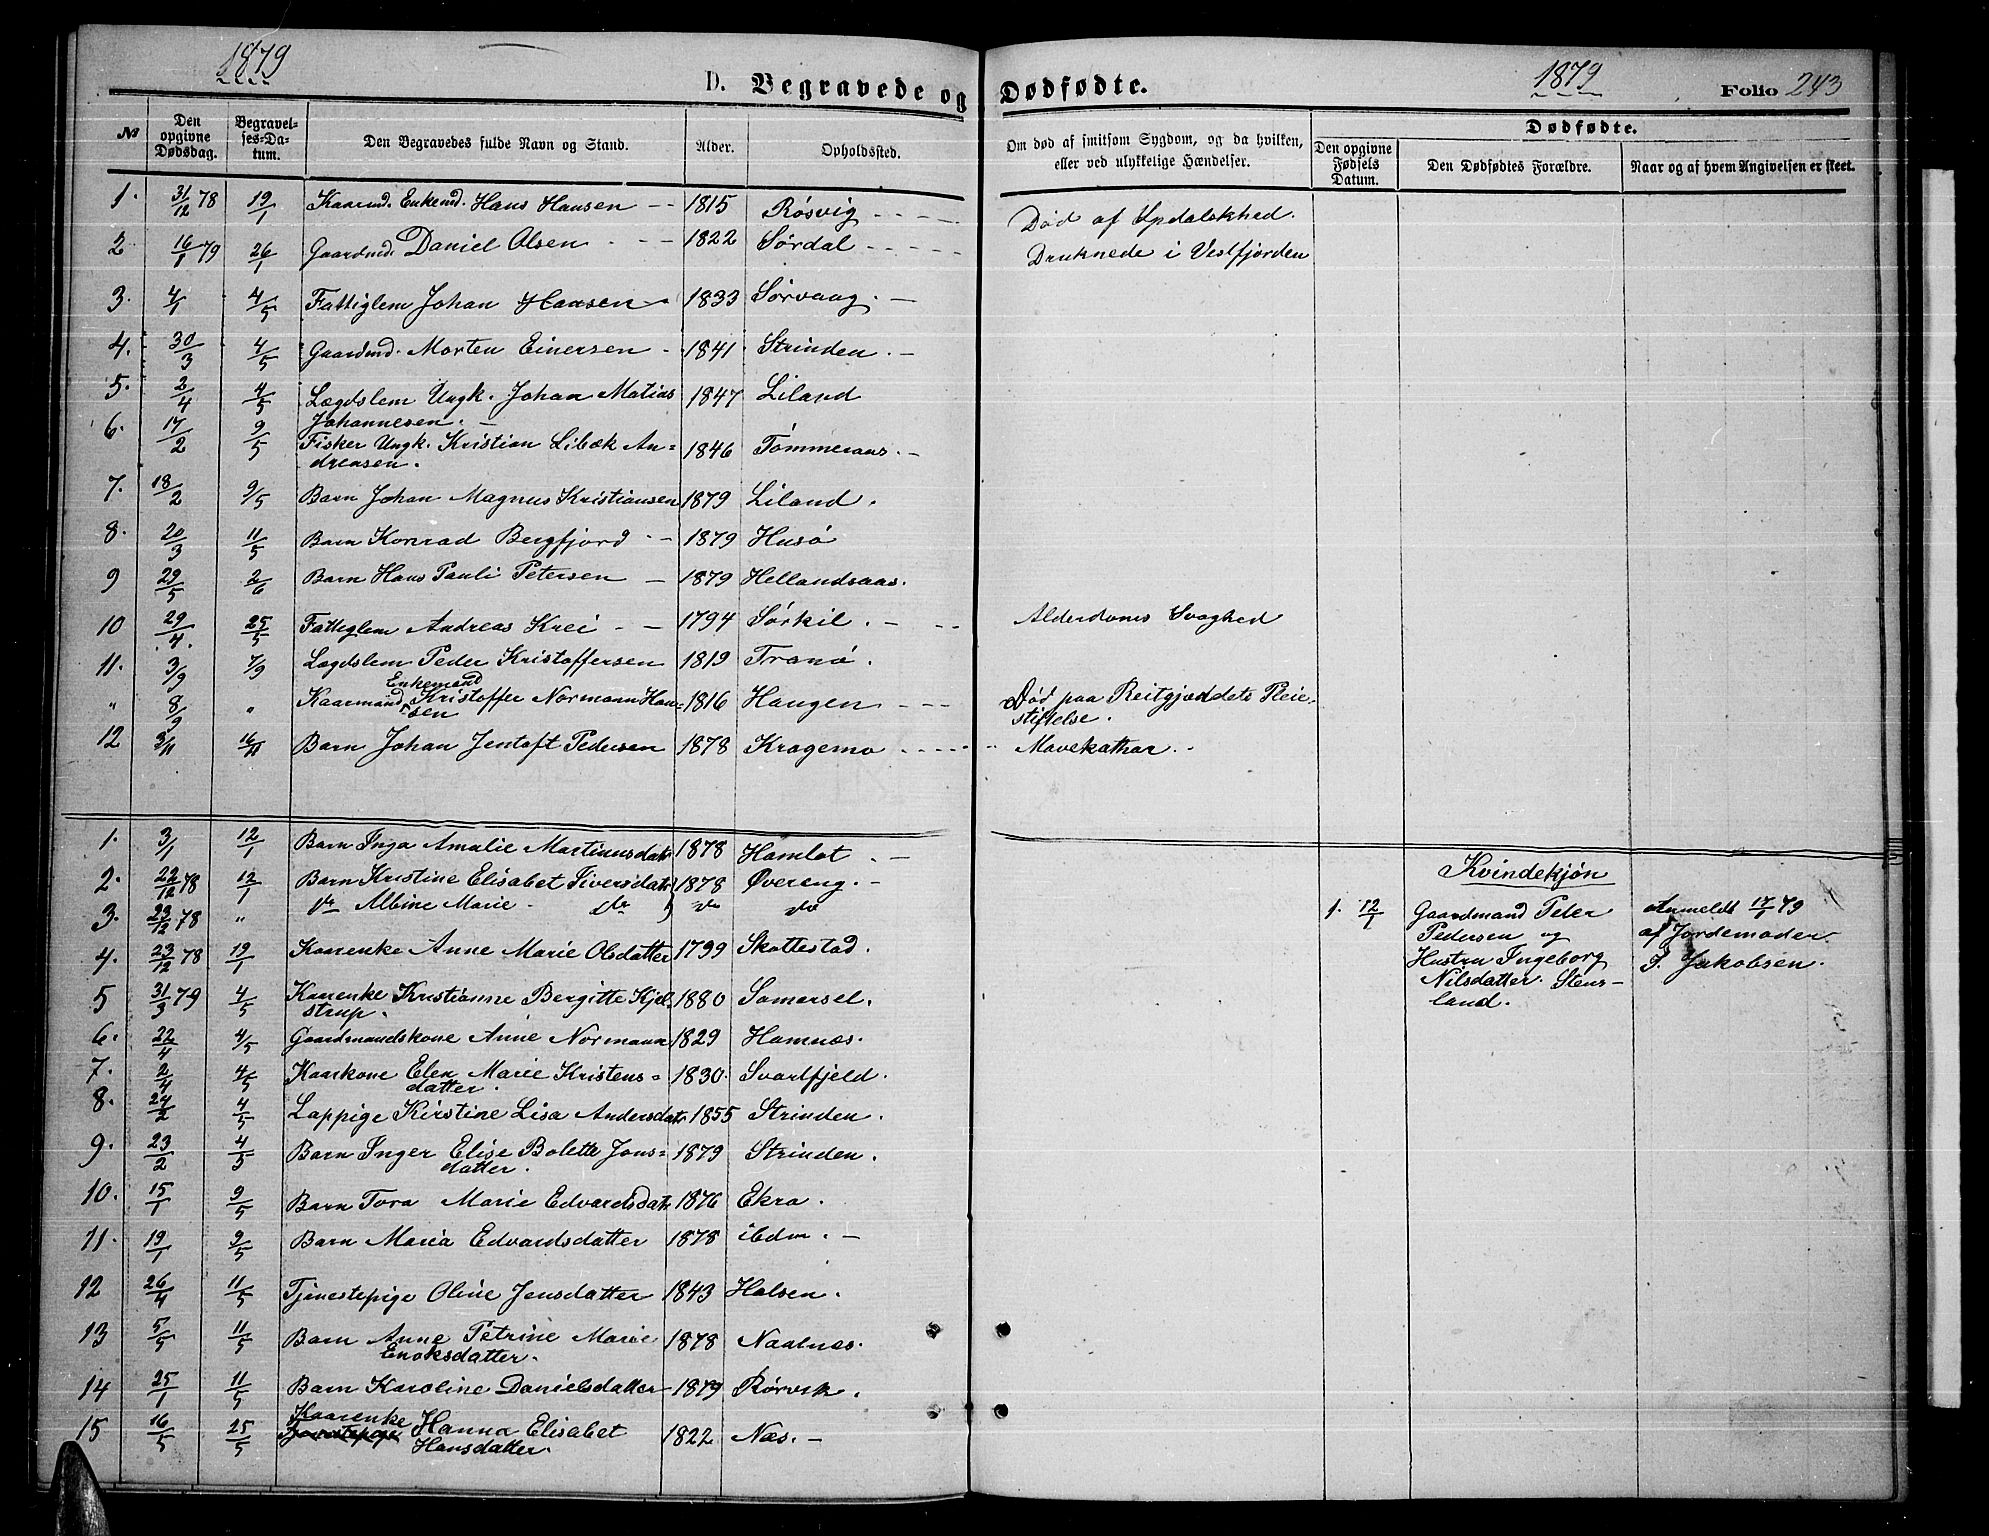 1879
D. Begravede og Dødfødte.
1879
Folio 243
No
Den opgivne Dødsdag.
Begravelses-Datum.
Den Begravedes fulde Navn og Stand.
Alder.
Opholdssted.
Om død af smitsom Sygdom, og da hvilken, eller ved ulykkelige Hændelser.
Dødfødte.
Den opgivne Fødsels Datum.
Den Dødfødtes Forældre.
Naar og af hvem Angivelsen er skeet.
1. 31/12 78 19/1 Kaarmd. Enkemd. Hans Hansen 1815 Røsvig Død af Spedalskhed.
2 16/1 79 26/1 Gaardmd. Daniel Olsen 1822 Sørdal Druknede i Vestfjorden
3. 4/1 4/5 Fattiglem Johan Hansen 1833 Sørvaag.
4. 30/3 4/5 Gaardmd. Morten Einersen 1841 Strinden.
5. 2/4 4/5 Lægdslem Ungk. Johan Matias 1847 Liland
Johannesen.
6. 17/2 9/5 Fisker Ungk. Kristian Libæk An= 1846 Tømmeraas.
dreasen.
7. 18/2 9/5 Barn Johan Magnus Kristiansen 1879 Liland.
8. 20/3 11/5 Barn Konrad Bergfjord 1879 Husø
9 29/5 2/6 Barn Hans Pauli Petersen 1879 Hellandsaas.
10 29/4. 25/5 Fattiglem Andreas Krei 1794 Sørkil. Alderdoms Svaghed
11. 3/9 7/9 Lægdslem Peder Kristoffersen 1819 Tranø.
Enkemand
" 8/9 " Kaarmand Kristoffer Normann Han= 1816 Haugen Død paa Reitgjærdets Pleie-
sen stiftelse.
12 3/11 16/11 Barn Johan Jentoft Pedersen 1878 Kragemo Mavekathar.
1. 3/1 12/1 Barn Inga Amalie Martinusdatr 1878 Hamlot.
2. 22/12 78 12/1 Barn Kristine Elisabet Siversdatr 1878 Øvereng.
3. 23/12 78 " do Albine Marie do do do
4. 23/12 78 19/1 Kaarenke Anne Marie Olsdatter 1799 Skottestad.
5 31/3 79 4/5 Kaarenke Kristianne Bergitte Kjel- 1880 Somarsel.
strup.
6. 22/4 4/5 Gaardmandskone Anne Normann 1829 Hamnæs.
7. 2/4 4/5 Kaarkone Elen Marie Kristens= 1830. Svartfjeld.
datter.
8. 24/2 4/5 Lappige Kirstine Lisa Andersdatr 1855 Strinden.
9. 23/2 4/5 Barn Inger Elise Bolette Jons= 1879 Strinden.
datter.
10. 15/1 9/5 Barn Tora Marie Edvardsdatr 1876 Ekra.
11. 19/1 9/5 Barn Maria Edvardsdatter 1878 ibdm.
12 26/4 11/5 Tjenestepige Oline Jensdatter 1843 Halsen.
13 5/5 11/5 Barn Anne Petrine Marie 1878 Naalnæs.
Enoksdatter.
14 25/1 11/5 Barn Karoline Danielsdatter 1879 Rørvik.
Kaarenke
15 16/5 25/5 Tjenestepige Hanna Elisabet 1822 Næs.
Hansdatter.
Kvindekjøn
1. 12/1 Gaardmand Peter
Pedersen og
Hustru Ingeborg
Nilsdatter. Stens-
land.
Anmeldt 17/1 79
af Jordemoder
J. Jakobsen.